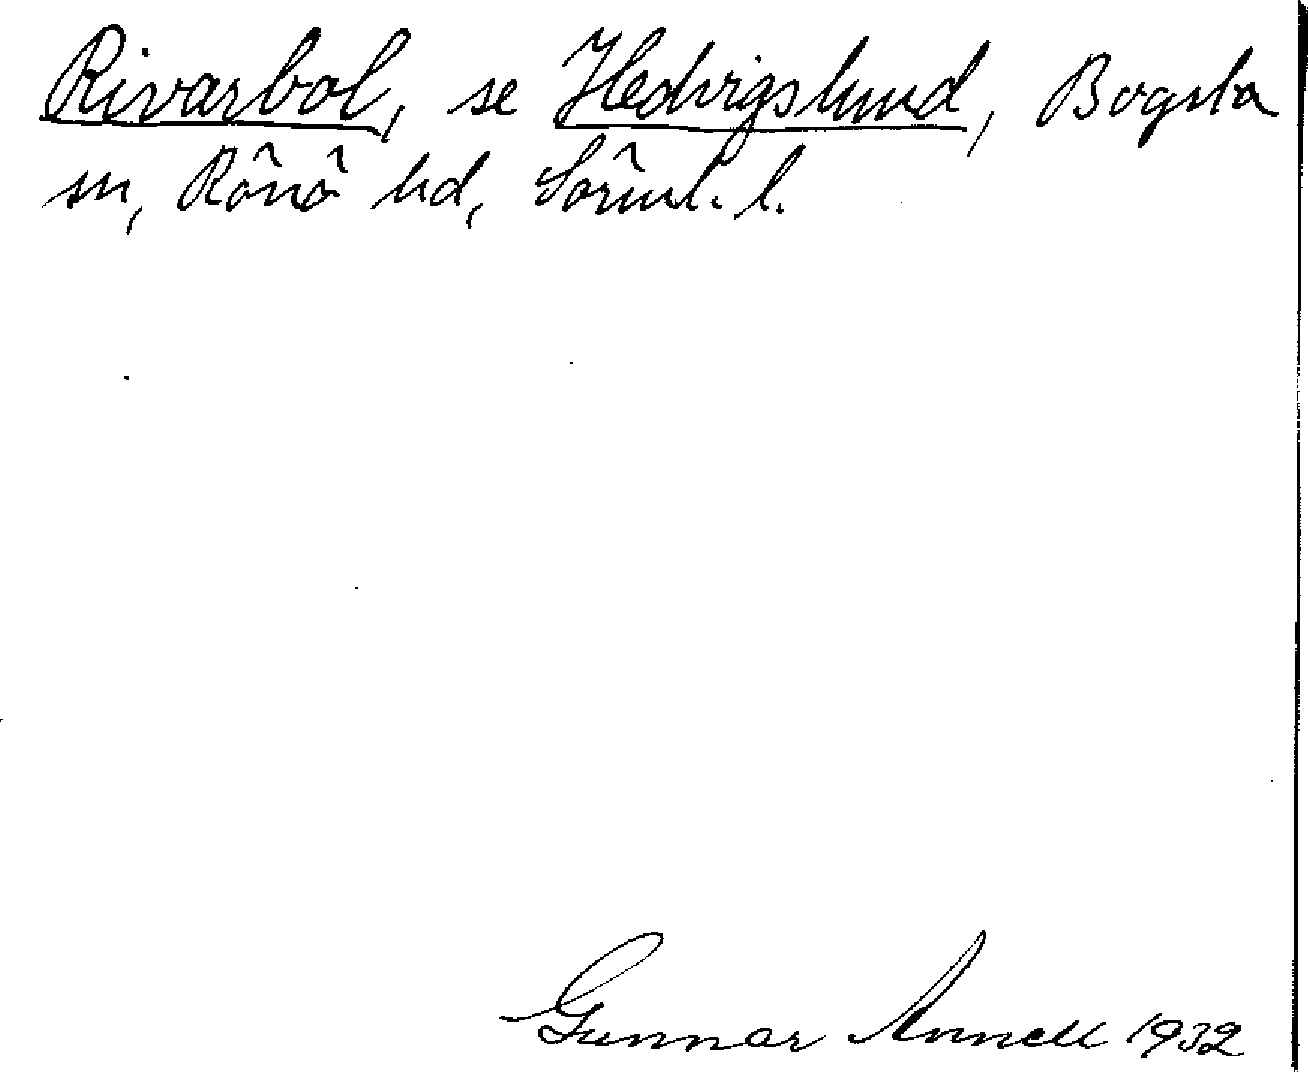 Rivarbol, se Hedvigslund, Bogsta
sn, Rönö hd, Sörml. l.
Gunnar Annell 1932